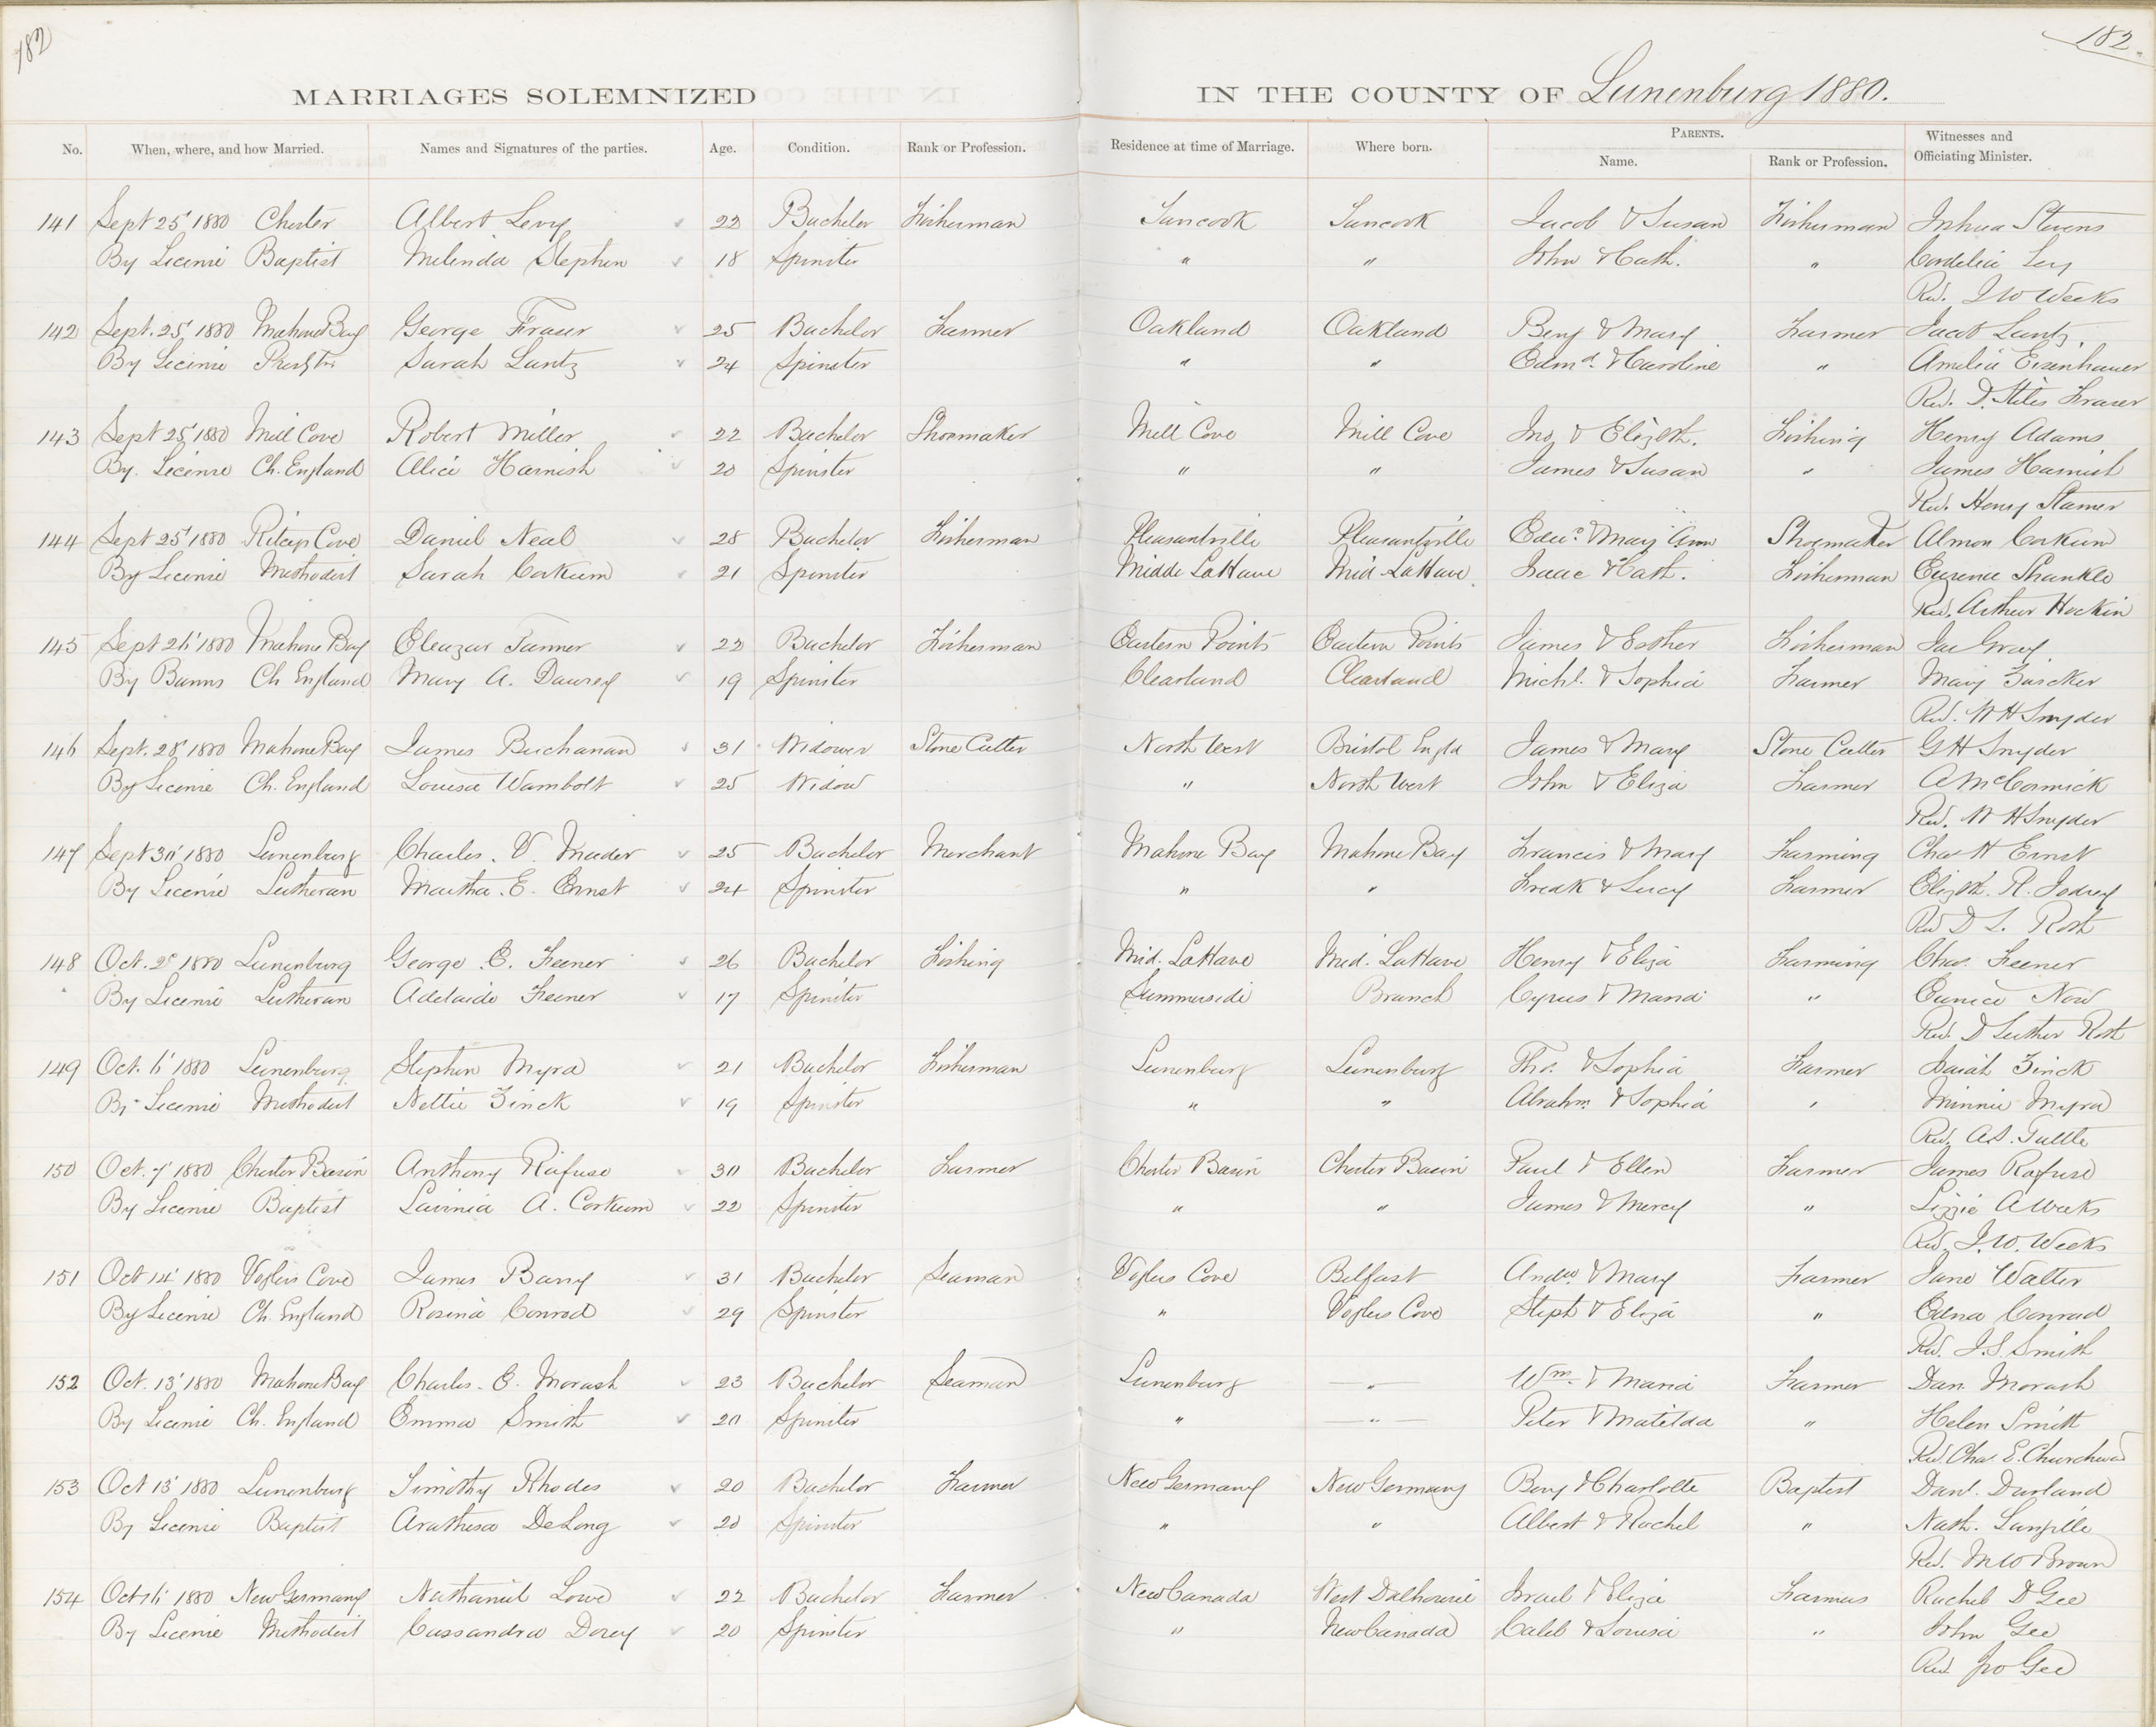 182
182.
MARRIAGES SOLEMNIZED IN THE COUNTY OF Lunenburg 1880.
No. When, where, and how Married. Names and Signatures of the parties. Age. Condition. Rank or Profession. Residence at time of Marriage. Where born. PARENTS. Name. Rank or Profession. Witnesses and Officiating Minister.
141 Sept 25' 1880 Chester Albert Levy 22 Bachelor Fisherman Tancook Tancook Jacob & Susan Fisherman Joshua Stevens
By License Baptist Melinda Stephen 18 Spinster " " John & Cath. " Cordelia Levy
Rev. I W Weeks
142 Sept. 25' 1880 Mahone Bay George Fraser 25 Bachelor Farmer Oakland Oakland Benj & Mary Farmer Jacob Lantz
By License Sarah Lantz 24 Spinster " " Edmd. & Caroline " Amelia Eisenhauer
Rev. D. Stiles Fraser
143 Sept 25' 1880 Mill Cove Robert Miller 22 Bachelor Shoemaker Mill Cove Mill Cove Jno & Elizbth. Fishing Henry Adams
By License Ch. England Alice Harnish 20 Spinster " " James & Susan " James Harnish
Rev. Henry Stamer
144 Sept 25' 1880 Ritcey Cove Daniel Neal 28 Bachelor Fisherman Pleasantville Pleasantville Edwd. & Mary Ann Shoemaker Almon Corkum
By License Methodist Sarah Corkum 21 Spinster Midde LaHave Mid LaHave Isaac & Cath. Fisherman Shankle
Rev. Arthur Hockin
145 Sept 26' 1880 Mahone Bay Eleazar Tanner 22 Bachelor Fisherman Eastern Points Eastern Points James & Esther Fisherman Jas Gray
By Banns Ch England Mary A. Daurey 19 Spinster Clearland Clearland Michl. & Sophia Farmer Mary Zwicker
Rev. W H Snyder
146 Sept. 28' 1880 Mahone Bay James Buchanan 31 Widower Stone Cutter North West Bristol Engld James & Mary Stone Cutter G H Snyder
By License Ch. England Louisa Wambolt 25 Widow " North West John & Eliza Farmer A McCormick
Rev. W H Snyder
147 Sept 30' 1880 Lunenburg Charles. V. Mader 25 Bachelor Merchant Mahone Bay Mahone Bay Francis & Mary Farming Chas H Ernst
By License Lutheran Martha. E. Ernst 24 Spinster " " Fredk & Lucy Farmer Elizbth. R. Jodrey
Rev D L. Roth
148 Oct. 2' 1880 Lunenburg George E. Feener 26 Bachelor Fishing Mid. LaHave Med. LaHave Henry & Eliza Farming Chas. Feener
By License Lutheran Adelaide Feener 17 Spinster Summerside Branch Cyrus & Maria " Eunice
Rev. D Luther Roth
149 Oct. 6' 1880 Lunenburg Stephen Myra 21 Bachelor Fisherman Lunenburg Lunenburg Tho. & Sophia Farmer Isaiah Zinck
By License Methodist Nettie Zinck 19 Spinster " " Abrahm. & Sophia " Minnie Myra
Rev. A.S. Tuttle
150 Oct. 7' 1880 Chester Basin Anthony Rafuse 30 Bachelor Farmer Chester Basin Chester Basin Paul & Ellen Farmer James Rafuse
By License Baptist Lavinia A. Corkum 22 Spinster " " James & Mercy " Lizzie A Weeks
Rev. I. W. Weeks
151 Oct 14' 1880 Voglers Cove James Barry 31 Bachelor Seaman Voglers Cove Belfast Andw & Mary Farmer Jane Walter
By License Ch. England Rosina Conrad 29 Spinster " Voglers Cove Steph & Eliza " Edna Conrad
Rev. J. S Smith
152 Oct. 13' 1880 Mahone Bay Charles. E. Morash 23 Bachelor Seaman Lunenburg — " — Wm. & Maria Farmer Dan Morash
By License Ch. England Emma Smith 20 Spinster " — " — Peter & Matilda " Helen Smith
Rev. Chas. E. Churchward
153 Oct 13' 1880 Lunenburg Timothy Rhodes 20 Bachelor Farmer New Germany New Germany Benj & Charlotte Baptist Danl. Durland
By License Baptist Arathusa DeLong 20 Spinster " " Albert & Rachel " Nath. Langille
Rev. M W Brown
154 Oct 16' 1880 New Germany Nathaniel Lowe 22 Bachelor Farmer New Canada West Dalhousie Israel & Eliza Farmers Rachel D Gee
By License Methodist Cassandra Dorey 20 Spinster " New Canada Caleb & Louisa " John Gee
Rev Jno Gee